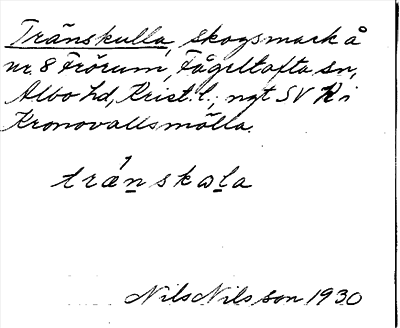 Tränskulla, skogsmark å
nr. 8 Frörum, Fågeltofta sn,
Albo hd, Krist. l., ngt SV R i
Kronovallsmölla.
trǽnskɷla
Nils Nilsson 1930